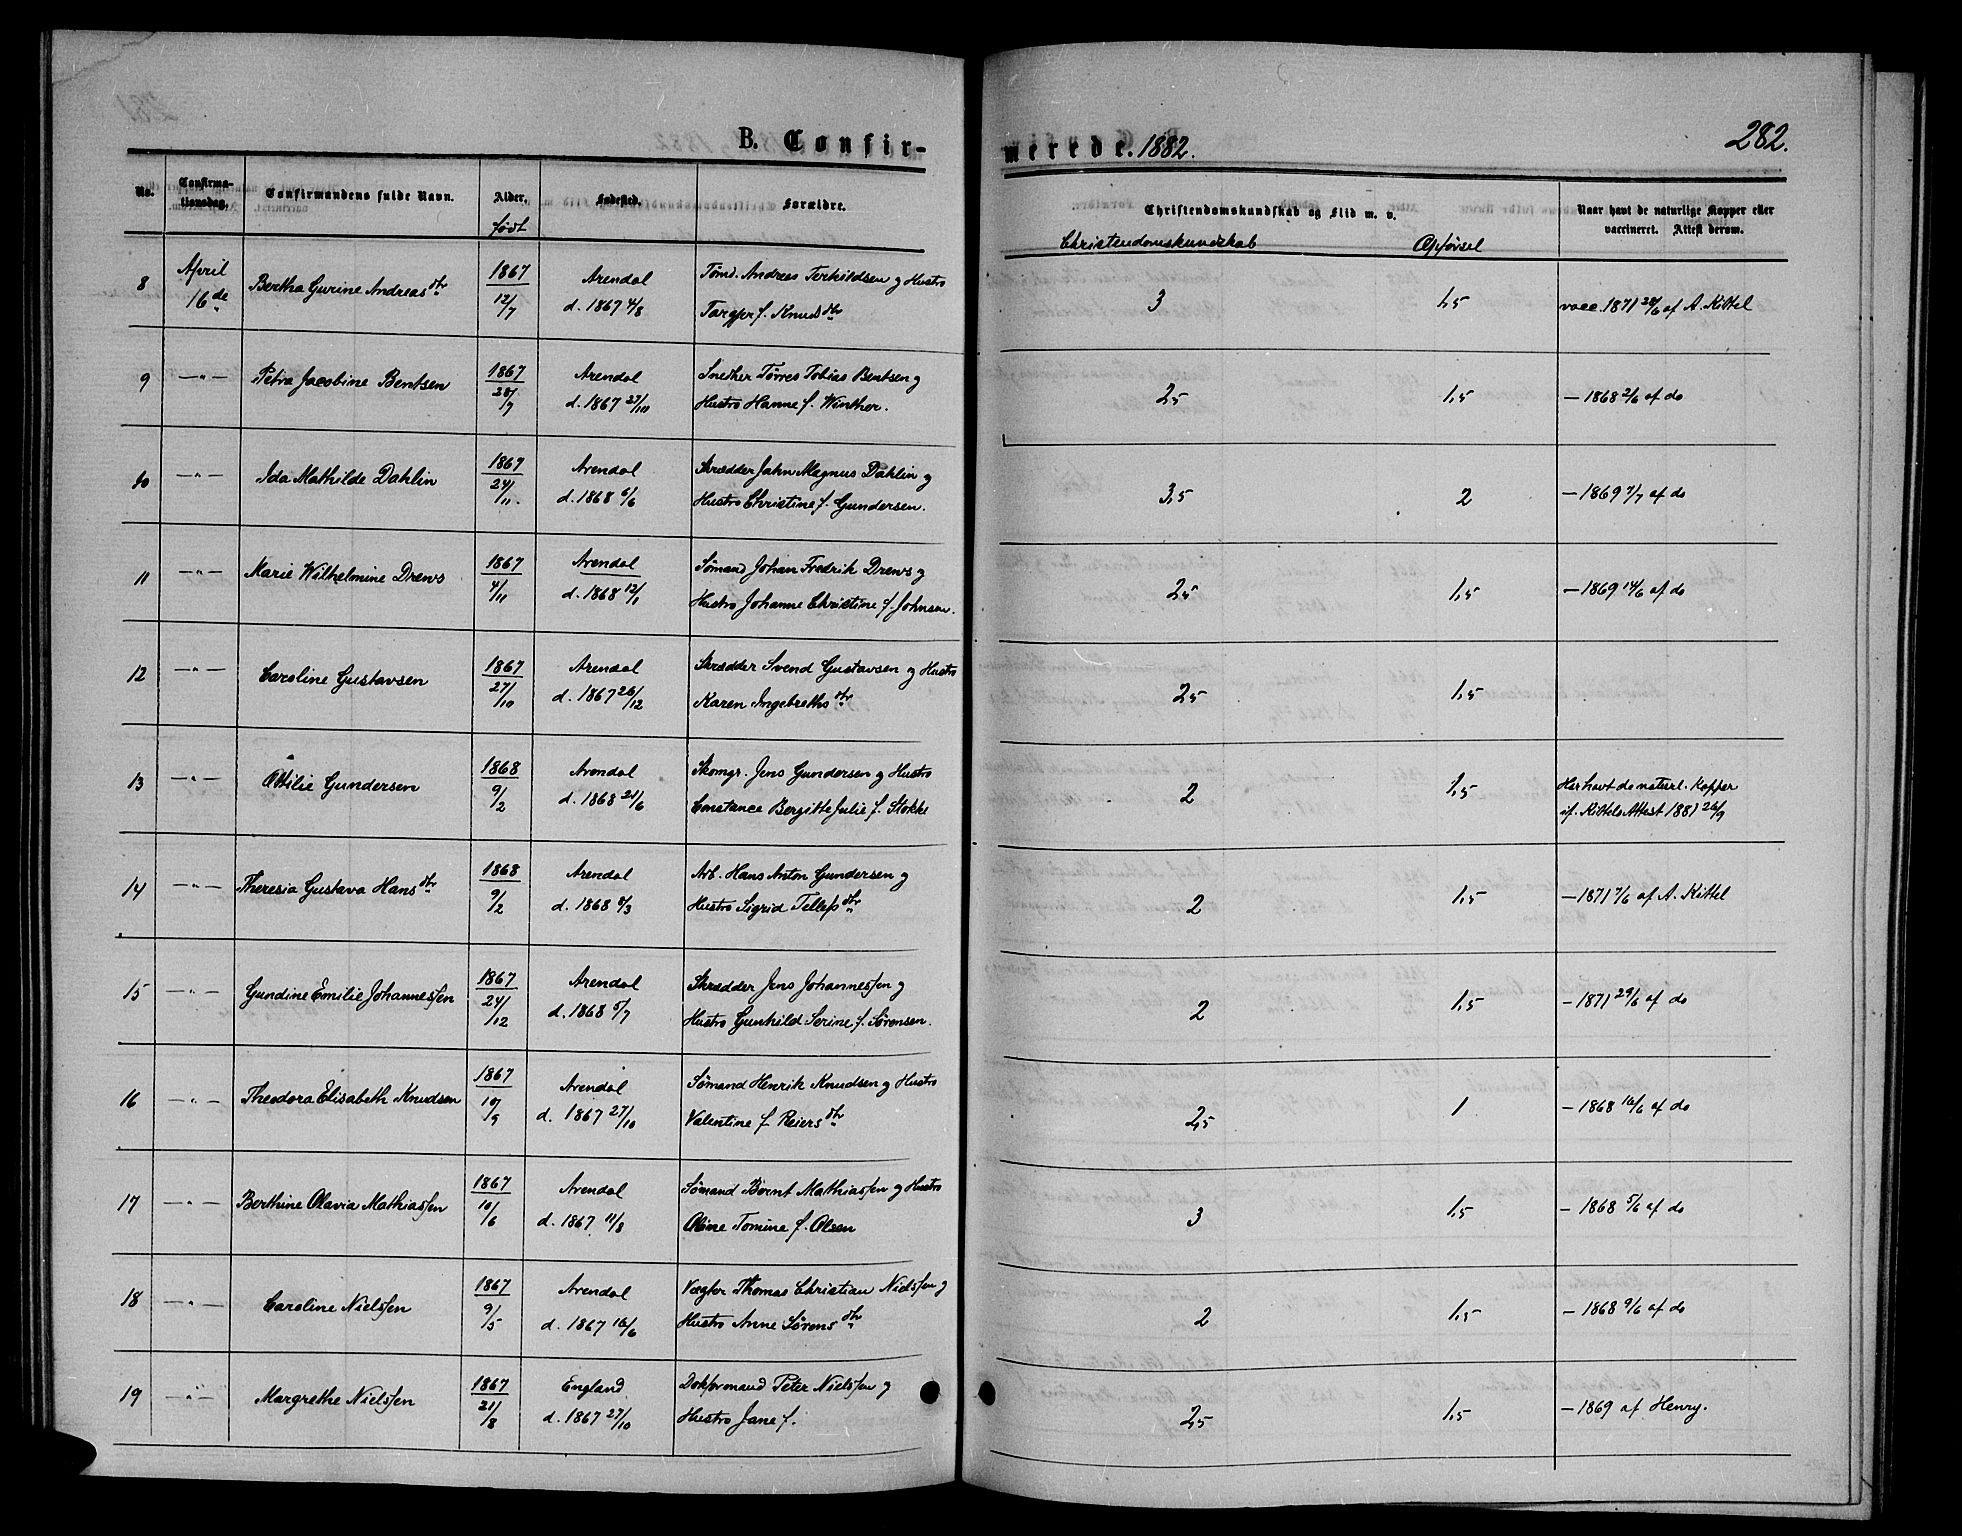 282.
B. Confir-
merede. 1882.
No.
Confirma-
tionsdag.
Confirmandens fulde Navn.
Alder.
født
Fødested.
Forældre.
Christendomskundskab og Flid m. v.
Christendomskundskab
Opførsel
Naar havt de naturlige Kopper eller
vaccineret. Attest derom.
8 April 16de Bertha Gurine Andreasdtr 1867 12/7 Arendal Tømd. Andreas Terkildsen og Hustro
d. 1867 4/8 Targjer f. Knudsdtr
3 1,5 vacc. 1871 28/6 af A. Kittel
9 —"— Petra Jacobine Bentsen 1867 28/7 Arendal Snedker Tørres Tobias Bentsen og
d. 1867 27/10 Hustro Hanne f. Winther.
2,5 1,5 — 1868 2/6 af do
10 —"— Ida Mathilde Dahlin 1867 24/11 Arendal Skrædder John Magnus Dahlin og
d. 1868 6/6 Hustro Christine f. Gundersen.
3,5 2 — 1869 7/7 af do
11 —"— Marie Wilhelmine Drews 1867 4/11 Arendal Sømand Johan Fredrik Drews og
d. 1868 12/1 Hustro Johanne Christine f. Johnsen.
2,5 1,5 — 1869 14/6 af do
12 —"— Caroline Gustavsen 1867 27/10 Arendal Skrædder Svend Gustavsen og Hustro
d. 1867 26/12 Karen Ingebrethsdtr
2,5 1,5
13 —"— Ottilie Gundersen 1868 9/2 Arendal Skomgr. Jens Gundersen og Hustro
d. 1868 21/6 Constance Bergitte Julie f. Stokke
2 1,5 Har havt de naturl. Kopper
if. Kittels Attest 1881 26/9
14 —"— Theresia Gustava Hansdtr 1868 9/2 Arendal Arb. Hans Anton Gundersen og
d. 1868 8/3 Hustro Sigrid Tellefsdtr
2 1,5 — 1871 7/6 af A. Kittel
15 —"— Gundine Emilie Johannessen 1867 24/12 Arendal Skrædder Jens Johannessen og
d. 1868 5/7 Hustro Gunhild Serine f. Sørensen.
2 1,5 — 1871 29/6 af do
16 —"— Theodora Elisabeth Knudsen 1867 10/9 Arendal Sømand Henrik Knudsen og Hustro
d. 1867 27/10 Valentine f. Reiersdtr
2,5 1 — 1868 16/6 af do
17 —"— Berthine Olavia Mathiassen 1867 10/6 Arendal Sømand Bernt Mathiassen og Hustro
d. 1867 11/8 Oline Tomine f. Olsen
3 1,5 — 1868 5/6 af do
18 —"— Caroline Nielssen 1867 9/5 Arendal Vægter Thomas Christian Nielssen og
d. 1867 16/6 Hustro Anne Sørensdtr
2 1,5 — 1868 9/6 af do
19 —"— Margrethe Nielssen 1867 21/8 England Dokformand Peter Nielssen og
d. 1867 27/10 Hustro Jane f.
2,5 1,5 — 1869 af Henry.